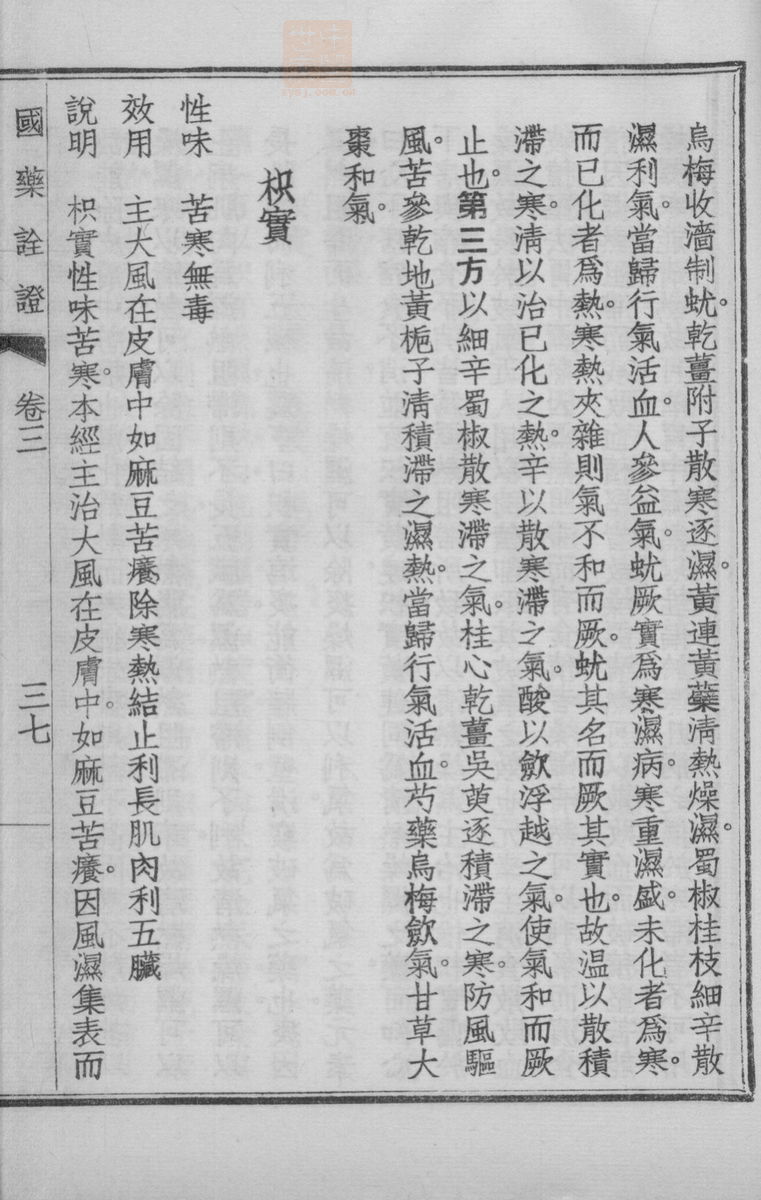 烏梅收濇制蚘。乾薑附子散寒逐濕。黃連黃蘗淸熱燥濕。蜀椒桂枝細辛散
濕利氣。當歸行氣活血。人參益氣。蚘厥實爲寒濕病。寒重濕盛。未化者爲寒。
而已化者爲熱。寒熱夾雜則氣不和而厥。蚘其名而厥其實也。故温以散積
滯之寒。淸以治已化之熱。辛以散寒滯之氣。酸以歛浮越之氣。使氣和而厥
止也。第三方以細辛蜀椒散寒滯之氣。桂心乾薑吳萸逐積滯之寒。防風驅
風。苦參乾地黃梔子淸積滯之濕熱。當歸行氣活血。芍藥烏梅歛氣。甘草大
棗和氣。
枳實
性味 苦寒無毒
效用 主大風在皮膚中如麻豆苦癢除寒熱結止利長肌肉利五臟
說明 枳實性味苦寒。本經主治大風在皮膚中。如麻豆苦癢。因風濕集表而
國藥詮證 卷三 三七